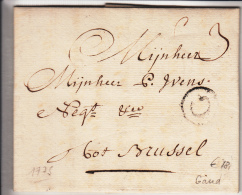 Mijnheer 3
Mijnheer P. Ivens
Neg.t &ca
Tot Brussel
1785
Gand